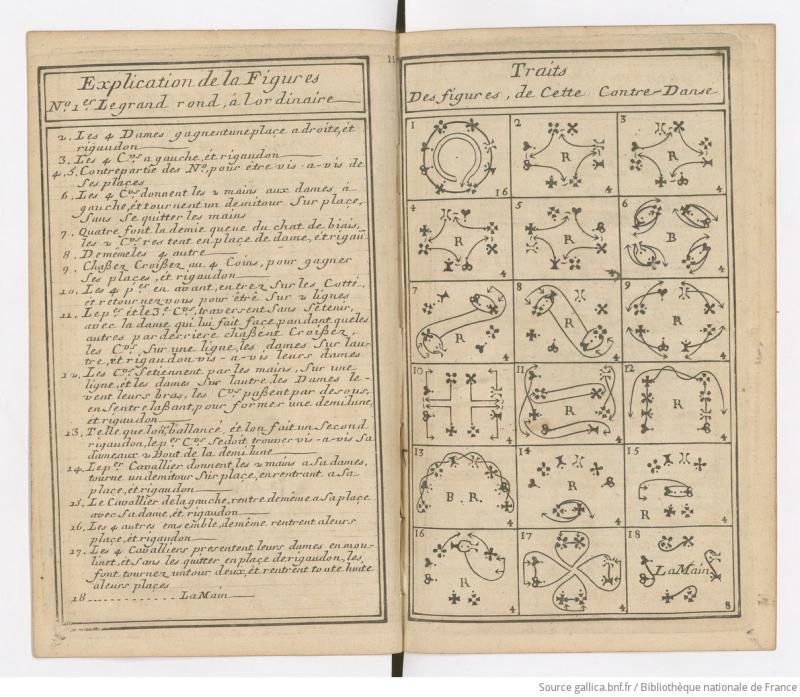 Explication de la Figures
No. 1er. Le grand rond, á lordinaire
2. Les 4 Dames gagnent une place a droite, ét
rigaudon
3. Les 4 Crs. a gauche, ét rigaudon
4,5. Contrepartie des No. pour être vis-a-vis de
Ses places
6. Les 4 Crs. donnent les 2 mains aux dames á
gauche, ét tournent un demitour Sur place,
Sans Se quitter les mains
7. Quatre font la demie queue du chat de biais,
les 2 Crs. restent en place de dame, ét rigau
8. De meme les 4 autre
9. Chaßez Croißez au 4 Coins, pour gagner
Ses places, ét rigaudon
10. Les 4 per. en avant, entrez Sur les Cotté,
ét retournez vous pour être Sur 2 lignes
11. Le per. ét le 3e. Crs. traversent Sans Setenir,
avec la dame qui lui fait face, pandant que les
autres par derriere chaßent Croißez,
les Crs. Sur une ligne, les dames Sur lau-
tre, ét rigaudon vis-a-vis leurs dames
12. Les Crs. Setiennent par les mains, Sur une
ligne, ét les dames Sur lautre, les Dames le-
vent leurs bras, les Crs. paßent par desous,
en Sentrelaßant, pour former une demilune,
ét rigaudon
13. Telle que lon ballance, ét lon fait un Second
rigaudon, le per. Crs. Se doit trouver vis-a-vis Sa
dame aux 2 Bout de la demilune
14. Le per. Cavallier donnent, les 2 mains a Sa dames,
tourne un demitour Sur place, en rentrant a Sa
place, ét rigaudon
15. Le Cavallier de la gauche, rentre de même a Sa place
avec Sa dame, ét rigaudon
16. Les 4 autres emsemble, de même rentrent a leurs
place, ét rigaudon
17. Les 4 Cavalliers presentent leurs dames en mou-
linet, ét Sans les quitter, en plaçe de rigaudon, les
font tournez un tour deux, ét rentrent toute huite
a leurs places
18 ............. La Main
Traits
Des figures, de Cette Contre-Danse
1 16
2 R 4
3 R 4
4 R 4
5 R 4
6 B 4
7 R 4
8 R 4
9 R 4
10 4
11 R 4
12 R 4
13 B. R. 4
14 4
15 4
16 R 4
17 4
18 La Main 8
Source gallica.bnf.fr / Bibliothèque nationale de France